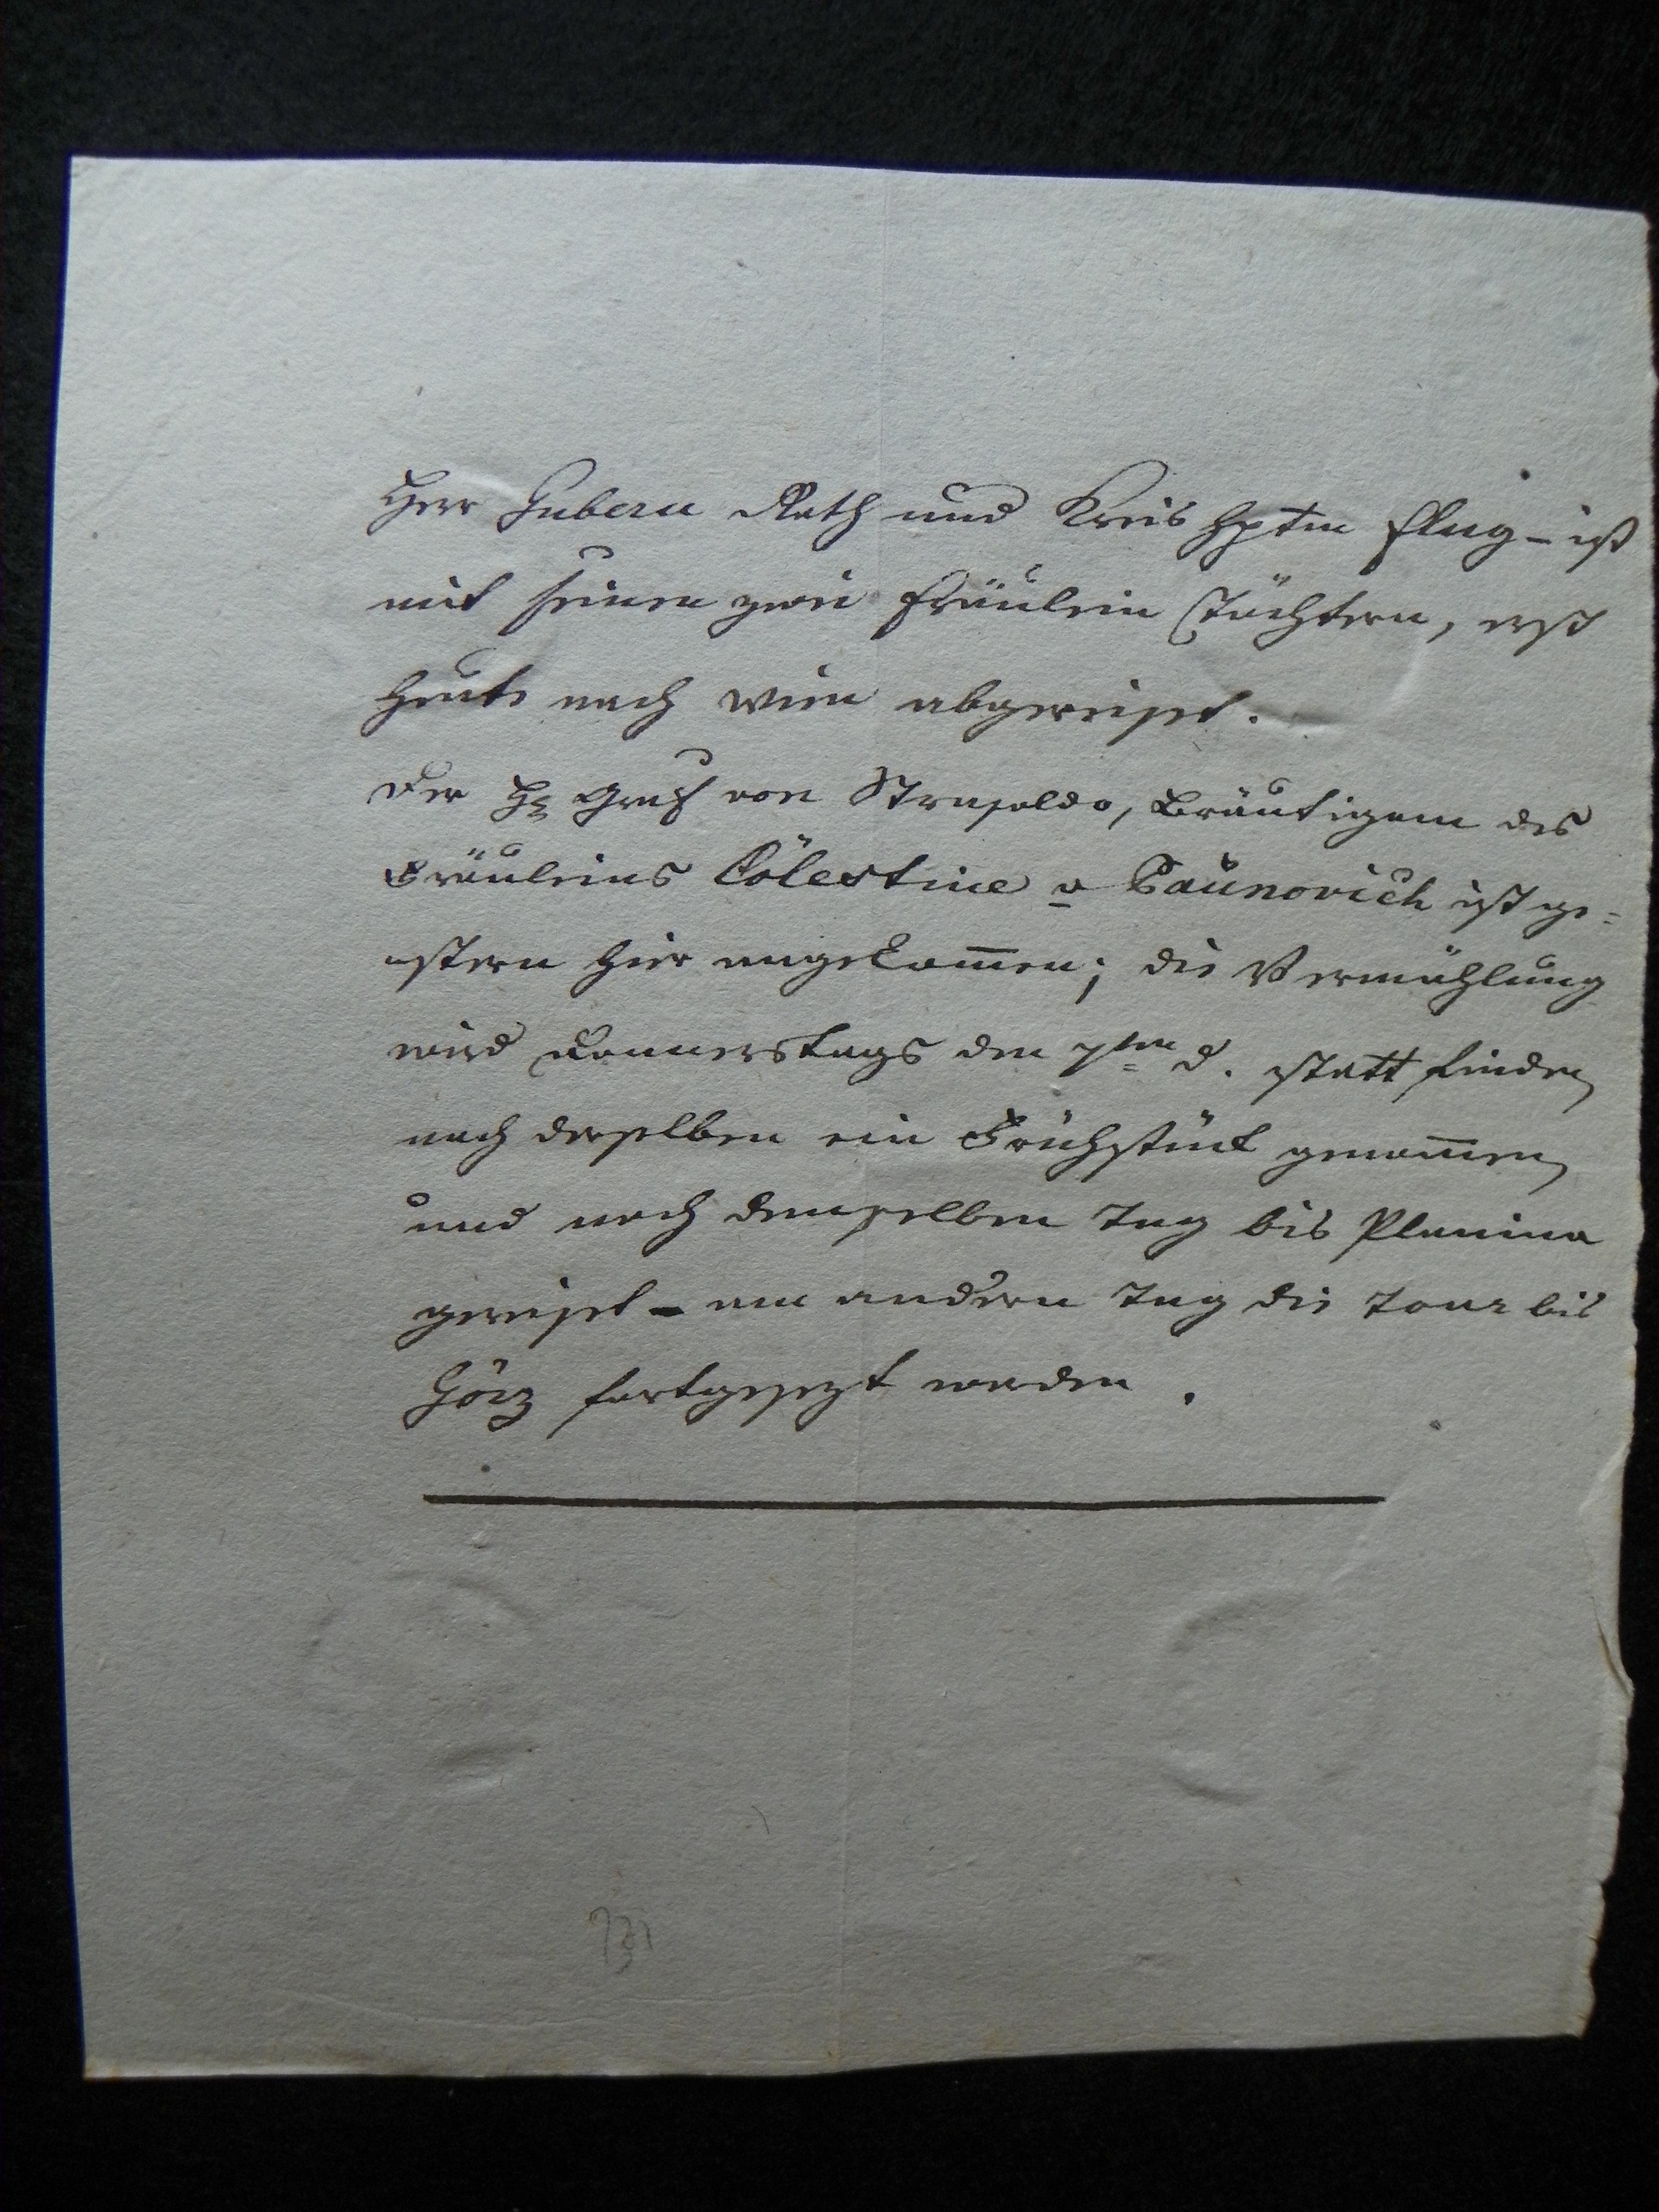 Herr Gubern Rath und Kreis Hptm Flug – ist
mit seinen zwei Fräulein Töchtern, erst
heute nach Wien abgereiset.
Der H Graf von Strasoldo, Bräutigam des
Fräuleins Cölestine v Paunovich ist ge=
stern hier angekom̄en; die Vermählung
wird Donnerstags den 7ten d. statt finden
nach derselben ein Frühstück genom̄en
und noch denselben Tag bis Planina
gereiset – am andern Tag die Tour bis
Görz fortgesezt werden.